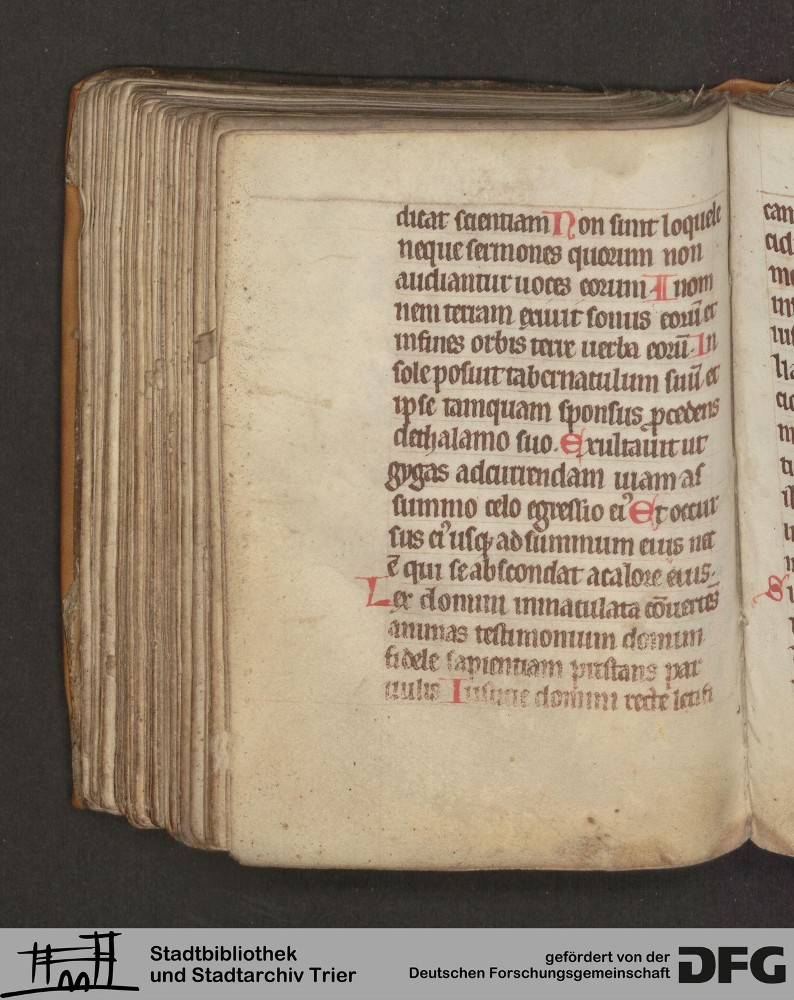 dicat scientiam Non sunt loquele
neque sermones quorum non
audiantur uoces eorum. In om
nem terram exiuit sonus eorū et
infines orbis terre uerba eorū. In
sole posuit tabernaculum suū et
ipse tamquam sponsus pcedens
dethalamo suo. Exultauit ut
gygas adcurrendam uiam as
summo celo egressio ei9 Et occur
sus ei9 usq; ad summum eius nec
ē qui se abscondat acalore eius.
Lex domini inmaculata cōuertēs
animas testimonium domini
fidele sapientiam prestans par
uulis Iusticie domini recte letifi
can
Stadtbibliothek
und Stadtarchiv Trier
gefördert von der
Deutschen Forschungsgemeinschaft
DFG